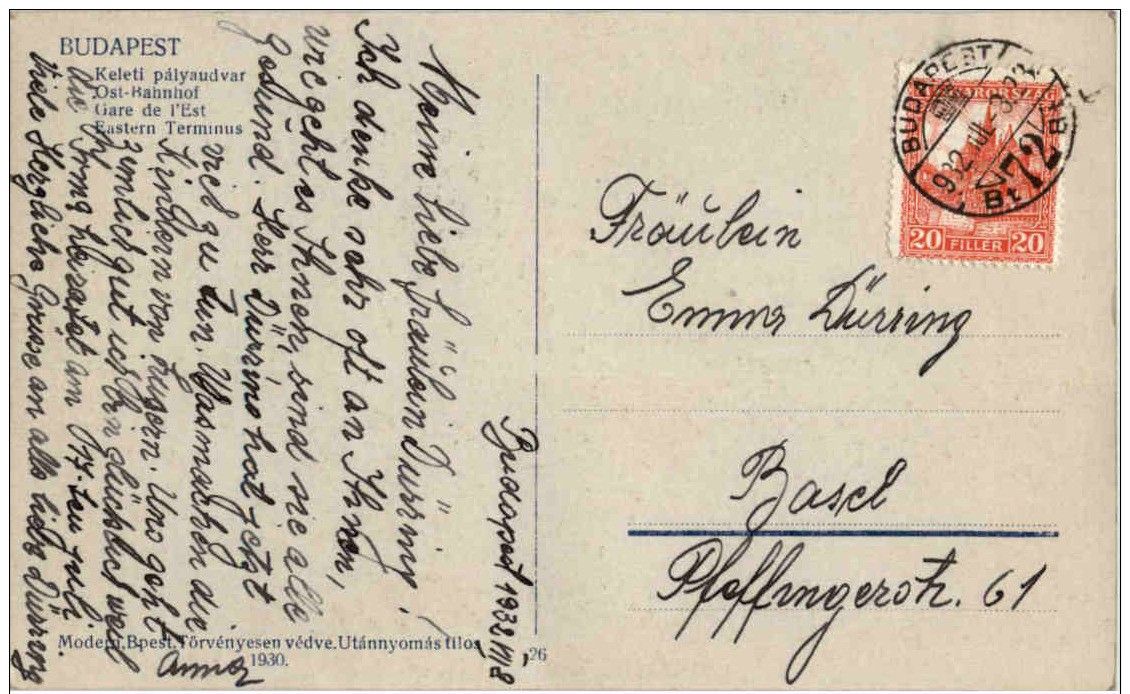 BUDAPEST
Keleti pályaudvar
Ost-Bahnhof
Gare de l'Est
Eastern Terminus
Budapest 1932 III 8
Meine liebe Fräulein Dürring!
Ich denke sehr oft an Ihnen,
wie geht es Ihnen, sind sie alle
gesund. Herr Dürrino hat jetzt
viel zu tun. Was machen die
Kinder von Lugern. Uns geht
zimlich gut ich bin glücklich weil
bis Irma Heiratet am 17-ten
Viele Herzliche Grüsse an alle liebe Dürring
Anna
Modern, Bpest. Törvényesen védve. Utánnyomás tilos
1930.
26
BUDAPEST 72
932 III
Bt
20 FILLÉR 20
Fräulein
Emma Dürring
Basel
Pfeffingerstr. 61